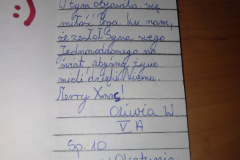 O tym objawiła się
miłość Boga ku nam,
że zesłał Syna swego
Jednorodzonego na
świat, abyśmy życie
mieli dzięki Niemu.
Merry Xmas!
Oliwia W
V A
Sp. 10